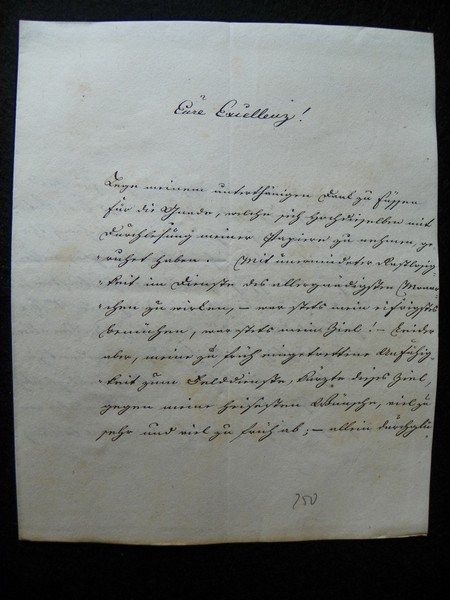 Eure Excellenz!
Lege meinem unterthänigen Dank zu Füssen
für die Gnade, welche sich Hochdieselben mit
Durchlesung meiner Papiere zu nehmen ge-
ruhet haben. Mit unermüdeter Rastlosig-
keit im Dienste des allergnädigsten Monar-
chen zu wirken, – war stets mein eifrigstes
bemühen, war stets mein Ziel! – Leider
aber, meine zu früh eingetrettene Unfähig-
keit zum Felddienste, kürzte dieses Ziel,
gegen meine heisesten Wünsche, viel zu
sehr und viel zu früh ab; – allein durchglü-
250